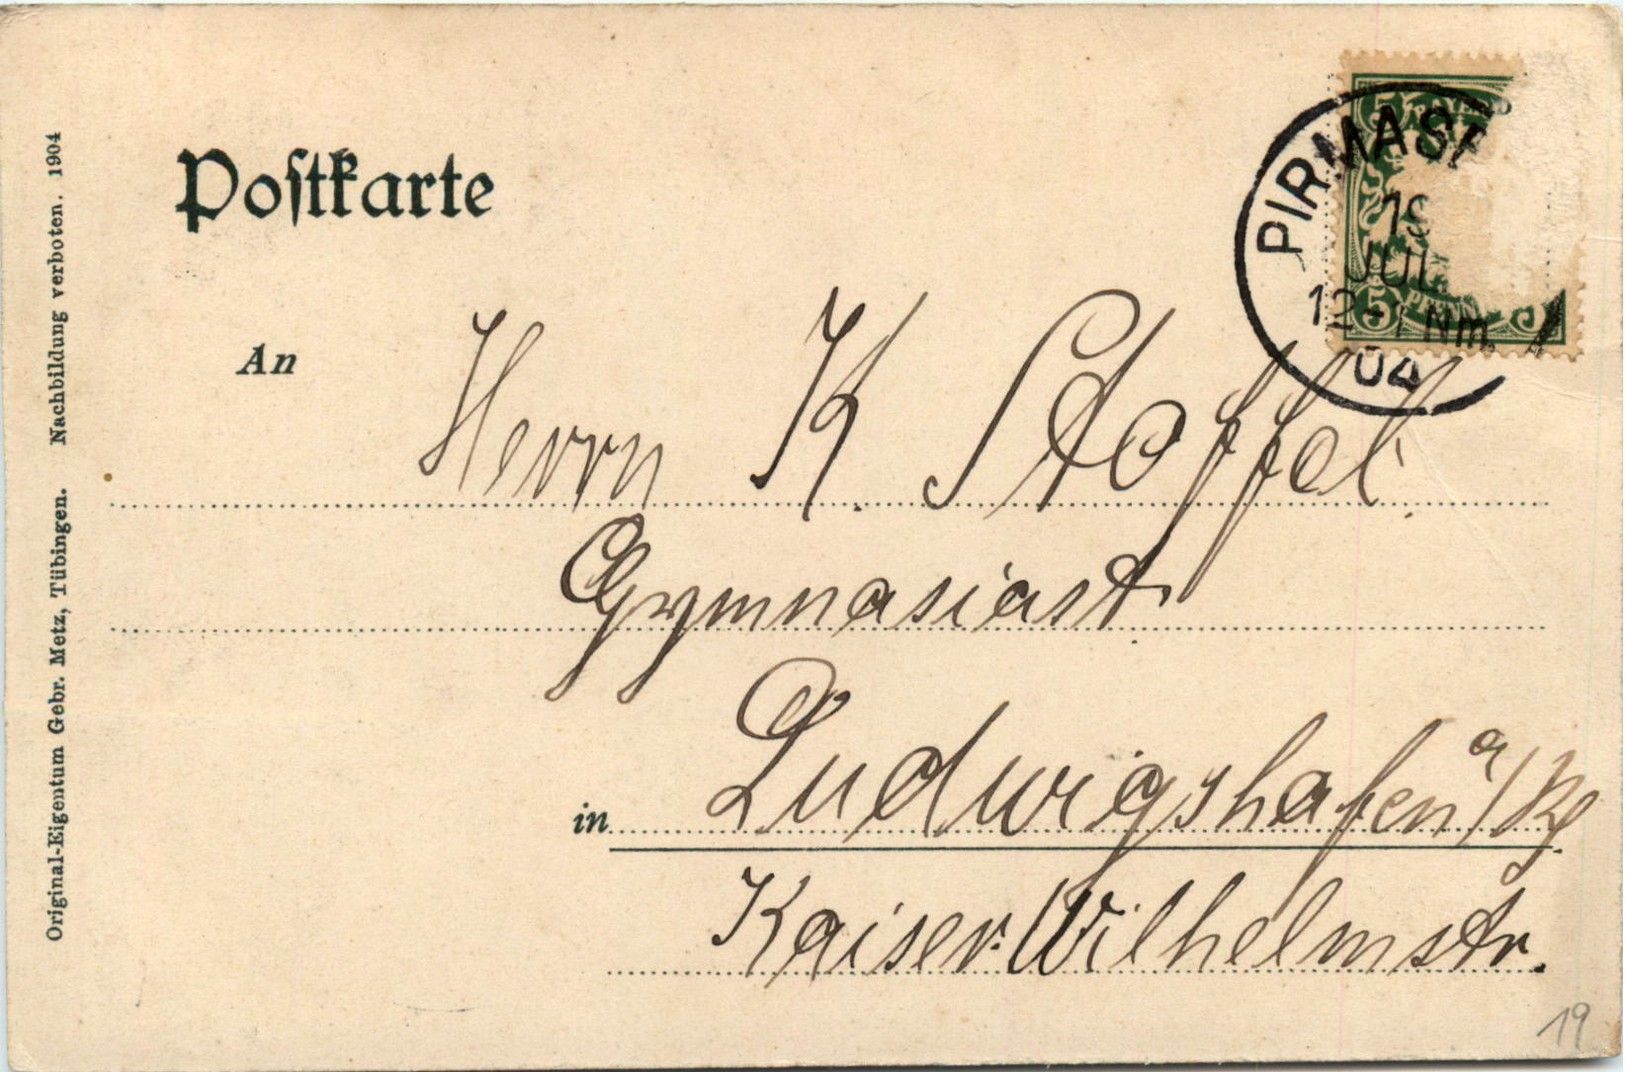 Postkarte
An
Herrn K. Stoffel.
Gymnasiast
in Ludwigshafen a/Rh.
Kaiser-Wilhelmstr.
Original-Eigentum Gebr. Metz, Tübingen. Nachbildung verboten. 1904
PIRMAS
JUL
12-1 Nm.
04
5
5
19